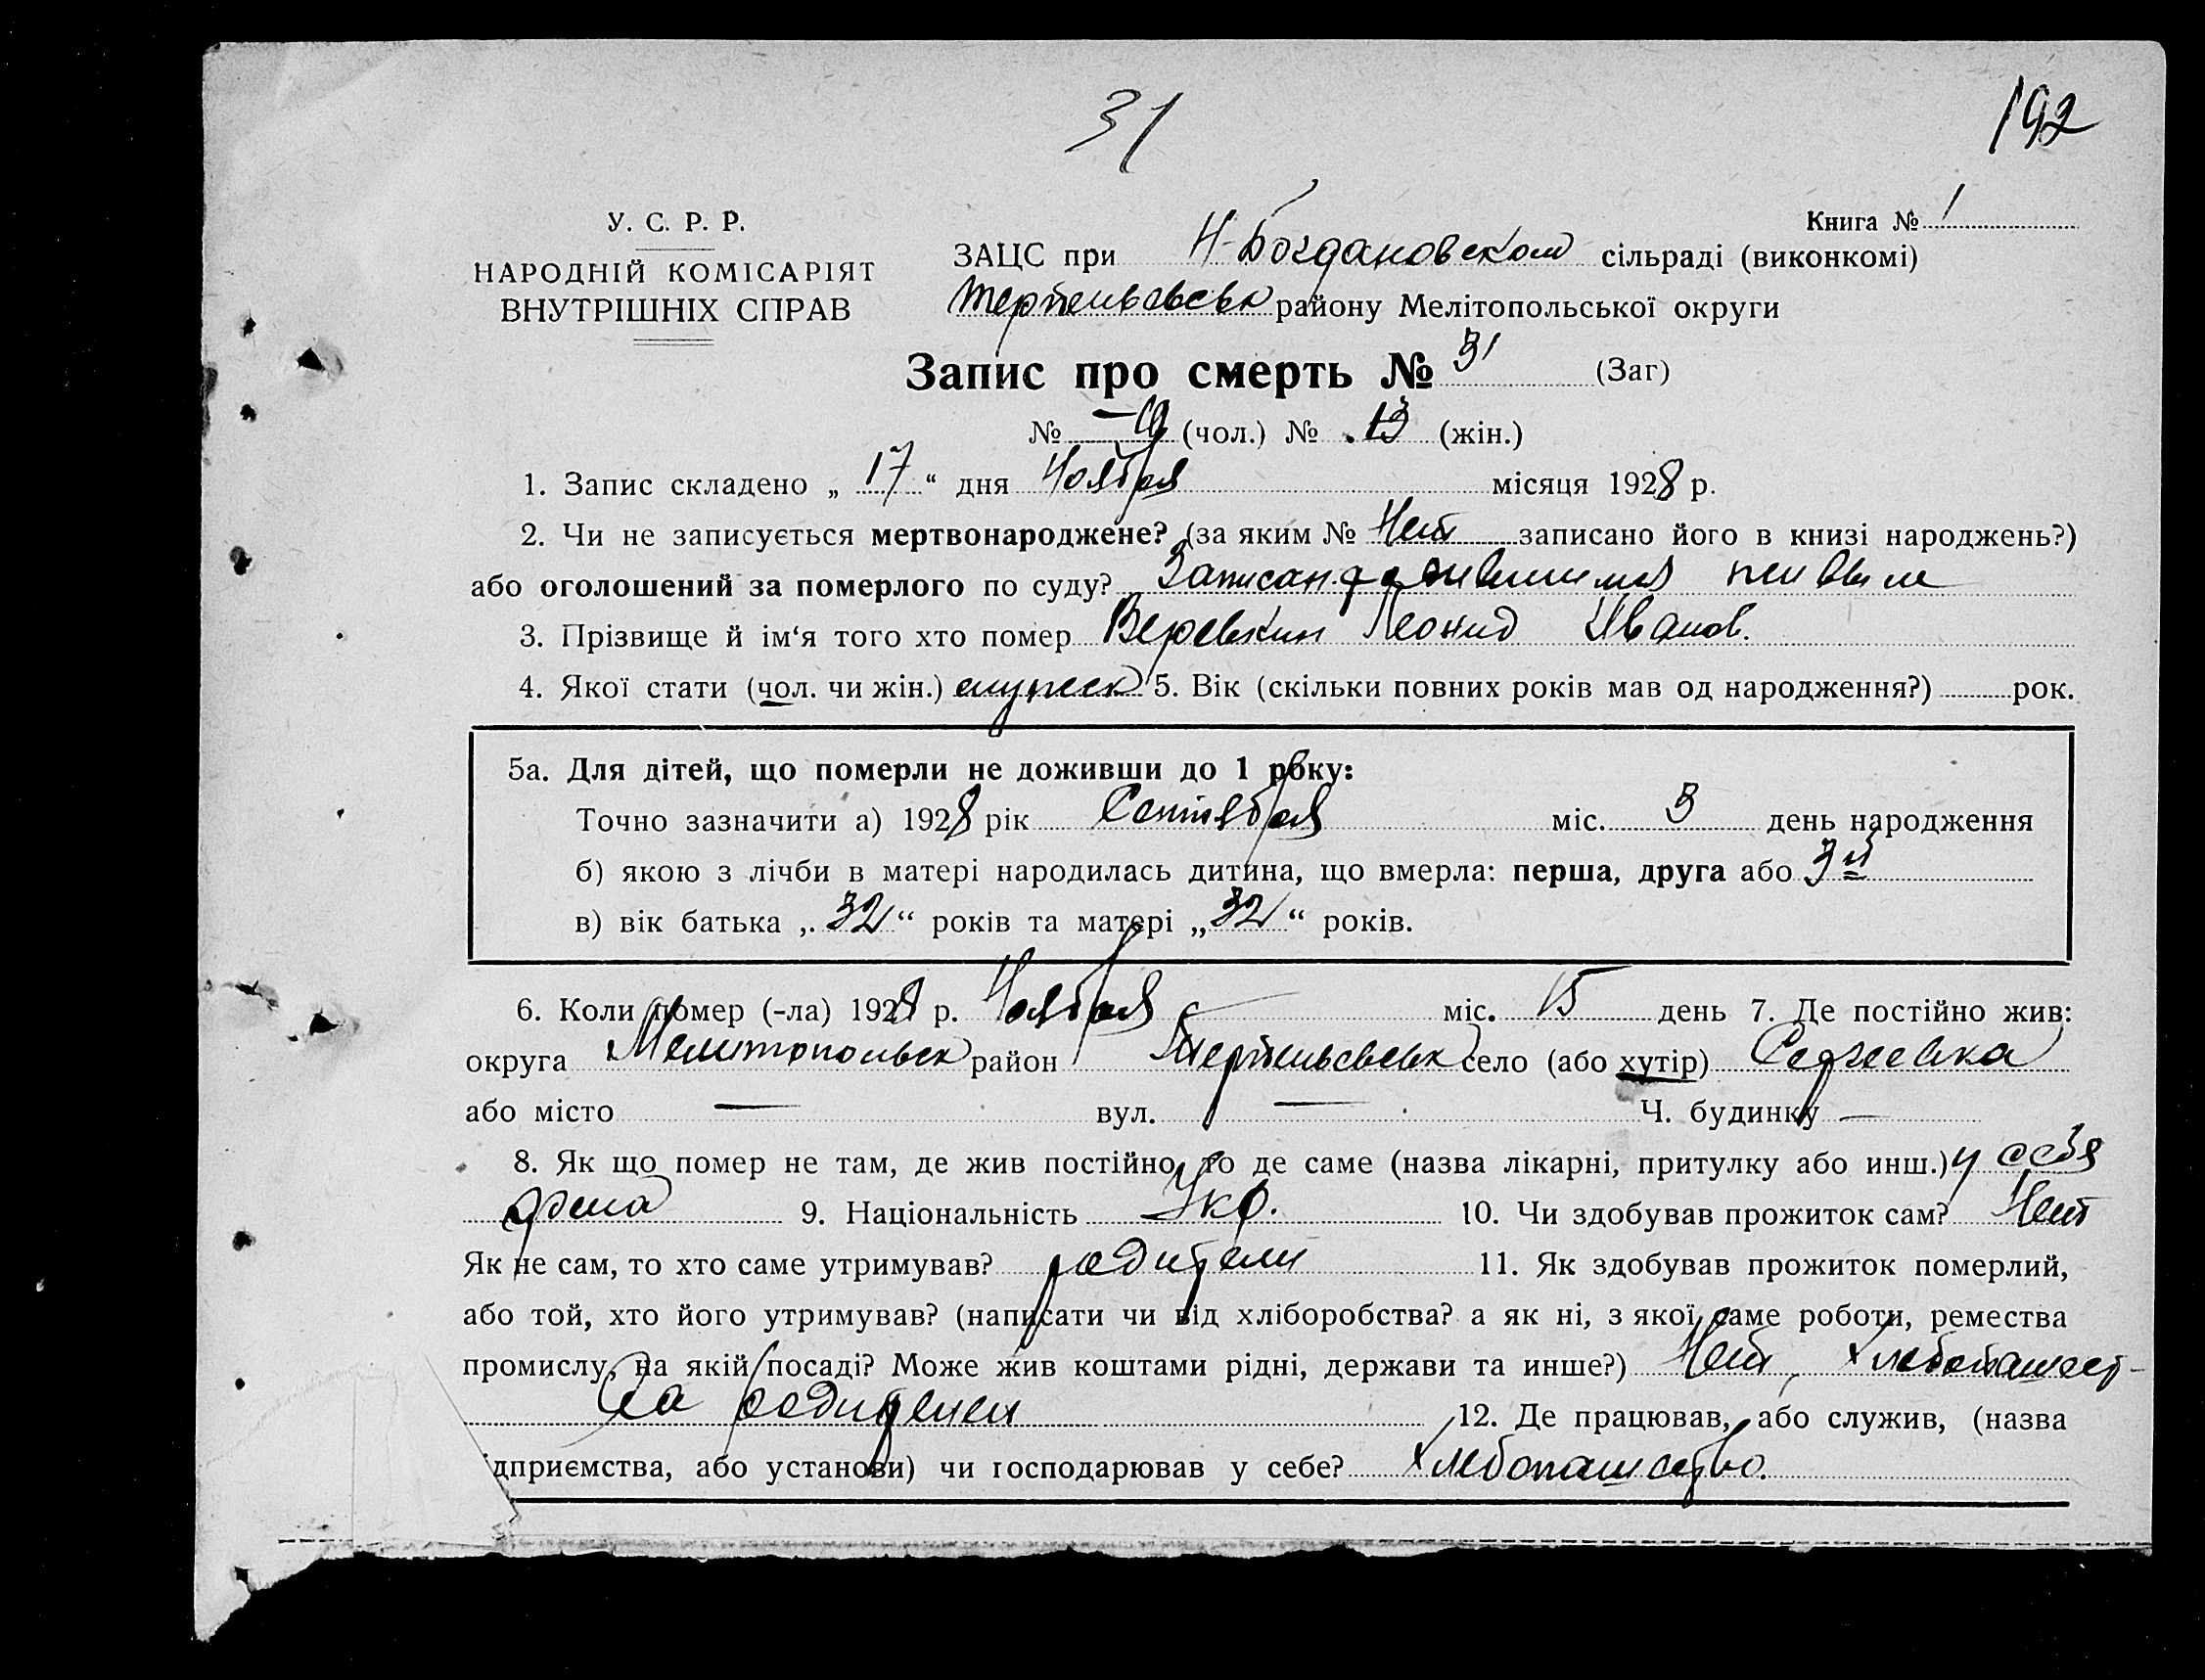 31
192
У. С. Р. Р.
НАРОДНІЙ КОМІСАРІЯТ
ВНУТРІШНІХ СПРАВ
Книга № 1
ЗАЦС при Н-Богдановском сільраді (виконкомі)
Терпеньевськ району Мелітопольської округи
Запис про смерть № 31 (Заг)
№ (чол.) № 13 (жін.)
1. Запис складено „ 17 “ дня Ноября місяця 1928 р.
2. Чи не записується мертвонароджене? (за яким № Нет записано його в книзі народжень?)
або оголошений за померлого по суду? Записан
3. Прізвище й ім‘я того хто помер Веревкин Леонид Иванов.
4. Якої стати (чол. чи жін.) мужск 5. Вік (скільки повних років мав од народження?) рок.
5а. Для дітей, що померли не доживши до 1 року:
Точно зазначити а) 1928 рік Сентября міс. 3 день народження
б) якою з лічби в матері народилась дитина, що вмерла: перша, друга або 3й
в) вік батька „ 32 “ років та матері „ 32 “ років.
6. Коли помер (-ла) 1928 р. Ноября міс. 15 день 7. Де постійно жив:
округа Мелитопольск район Терпеньевськ село (або хутір) Сергеевка
або місто — вул. — Ч. будинку —
8. Як що помер не там, де жив постійно, то де саме (назва лікарні, притулку або инш.) у себя
дома 9. Національність Укр. 10. Чи здобував прожиток сам? Нет
Як не сам, то хто саме утримував? родители 11. Як здобував прожиток померлий,
або той, хто його утримував? (написати чи від хліборобства? а як ні, з якої саме роботи, ремества
промислу, на якій посаді? Може жив коштами рідні, держави та инше?) Нет, хлебопашест-
12. Де працював, або служив, (назва
ідприємства, або установи) чи господарював у себе? Хлебопашество.